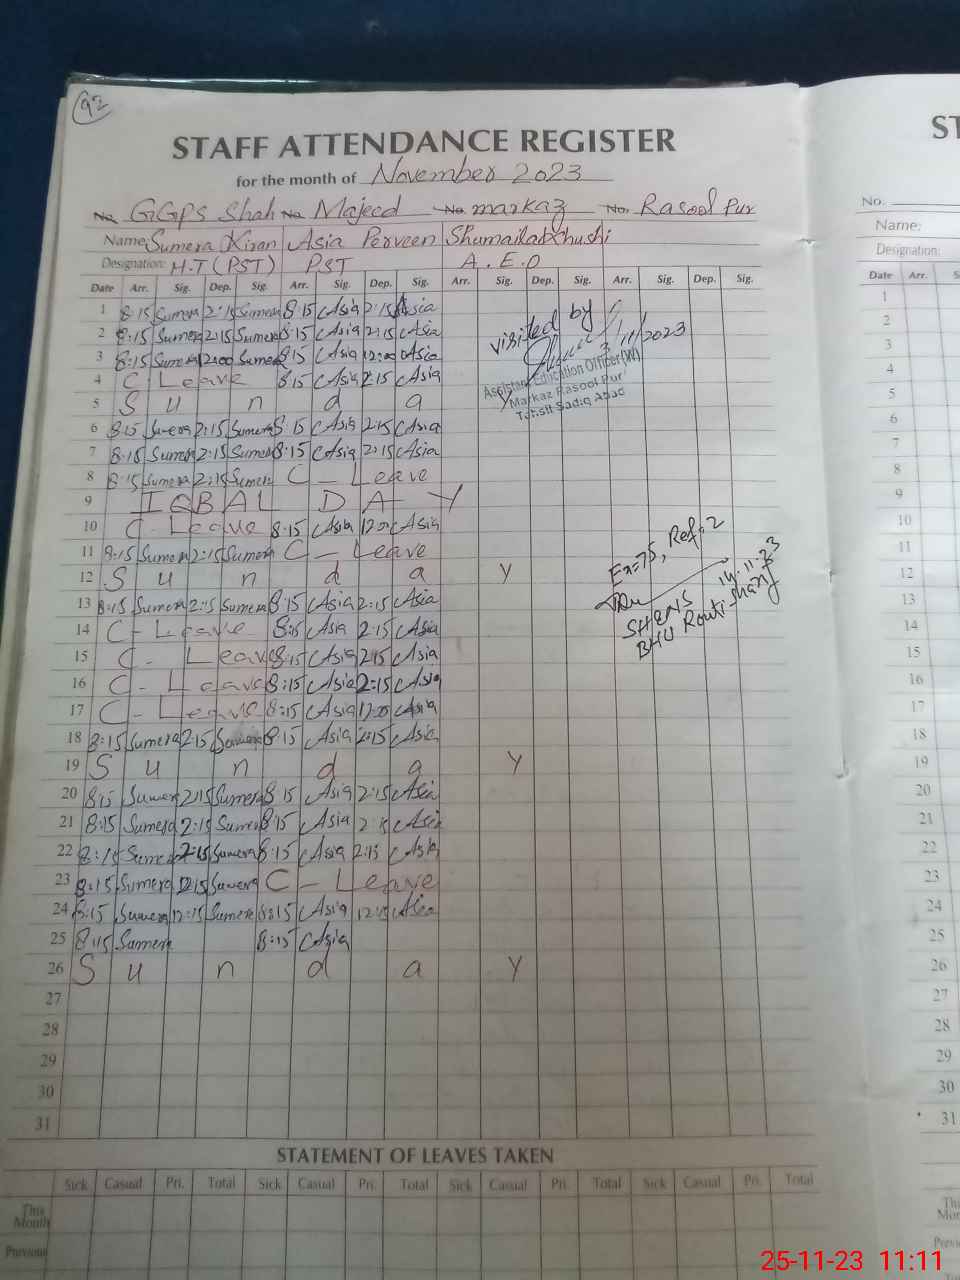 92
STAFF ATTENDANCE REGISTER
for the month of November 2023
No. GGPS Shah No. Majeed No. markaz No. Rasool Pur
Name: Sumera Kiran Asia Perveen Shumaila Khushi
Designation: H.T (PST) PST A.E.O
Date Arr. Sig. Dep. Sig. Arr. Sig. Dep. Sig. Arr. Sig. Dep. Sig. Arr. Sig. Dep. Sig.
1 8:15 Sumera 2:15 Sumera 8:15 Asia 2:15 Asia
2 8:15 Sumera 2:15 Sumera 8:15 Asia 2:15 Asia
3 8:15 Sumera 12:00 Sumera 8:15 Asia 12:00 Asia
4 C Leave 8:15 Asia 2:15 Asia
5 S u n d a y
visited by
3/11/2023
Assistant Education Officer (W)
Markaz Rasool Pur
Tehsil Sadiq Abad
6 8:15 Sumera 2:15 Sumera 8:15 Asia 2:15 Asia
7 8:15 Sumera 2:15 Sumera 8:15 Asia 2:15 Asia
8 8:15 Sumera 2:15 Sumera C - Leave
9 IQBAL DAY
10 C - Leave 8:15 Asia 12:00 Asia
11 8:15 Sumera 2:15 Sumera C - Leave
12 S u n d a y
13 8:15 Sumera 2:15 Sumera 8:15 Asia 2:15 Asia
Ex=75, Ref:2
14.11.23
SH&NS
BHU Routi Sharif
14 C - Leave 8:15 Asia 2:15 Asia
15 C - Leave 8:15 Asia 2:15 Asia
16 C - Leave 8:15 Asia 2:15 Asia
17 C - Leave 8:15 Asia 12:00 Asia
18 8:15 Sumera 2:15 Sumera 8:15 Asia 2:15 Asia
19 S u n d a y
20 8:15 Sumera 2:15 Sumera 8:15 Asia 2:15 Asia
21 8:15 Sumera 2:15 Sumera 8:15 Asia 2:15 Asia
22 8:15 Sumera 2:15 Sumera 8:15 Asia 2:15 Asia
23 8:15 Sumera 2:15 Sumera C - Leave
24 8:15 Sumera 12:15 Sumera 8:15 Asia 12:15 Asia
25 8:15 Sumera 8:15 Asia
26 S u n d a y
27
28
29
30
31
STATEMENT OF LEAVES TAKEN
Sick Casual Pri. Total Sick Casual Pri. Total Sick Casual Pri. Total Sick Casual Pri. Total
This Month
Previous
ST
No.
Name:
Designation:
Date Arr. S
1
2
3
4
5
6
7
8
9
10
11
12
13
14
15
16
17
18
19
20
21
22
23
24
25
26
27
28
29
30
31
25-11-23 11:11